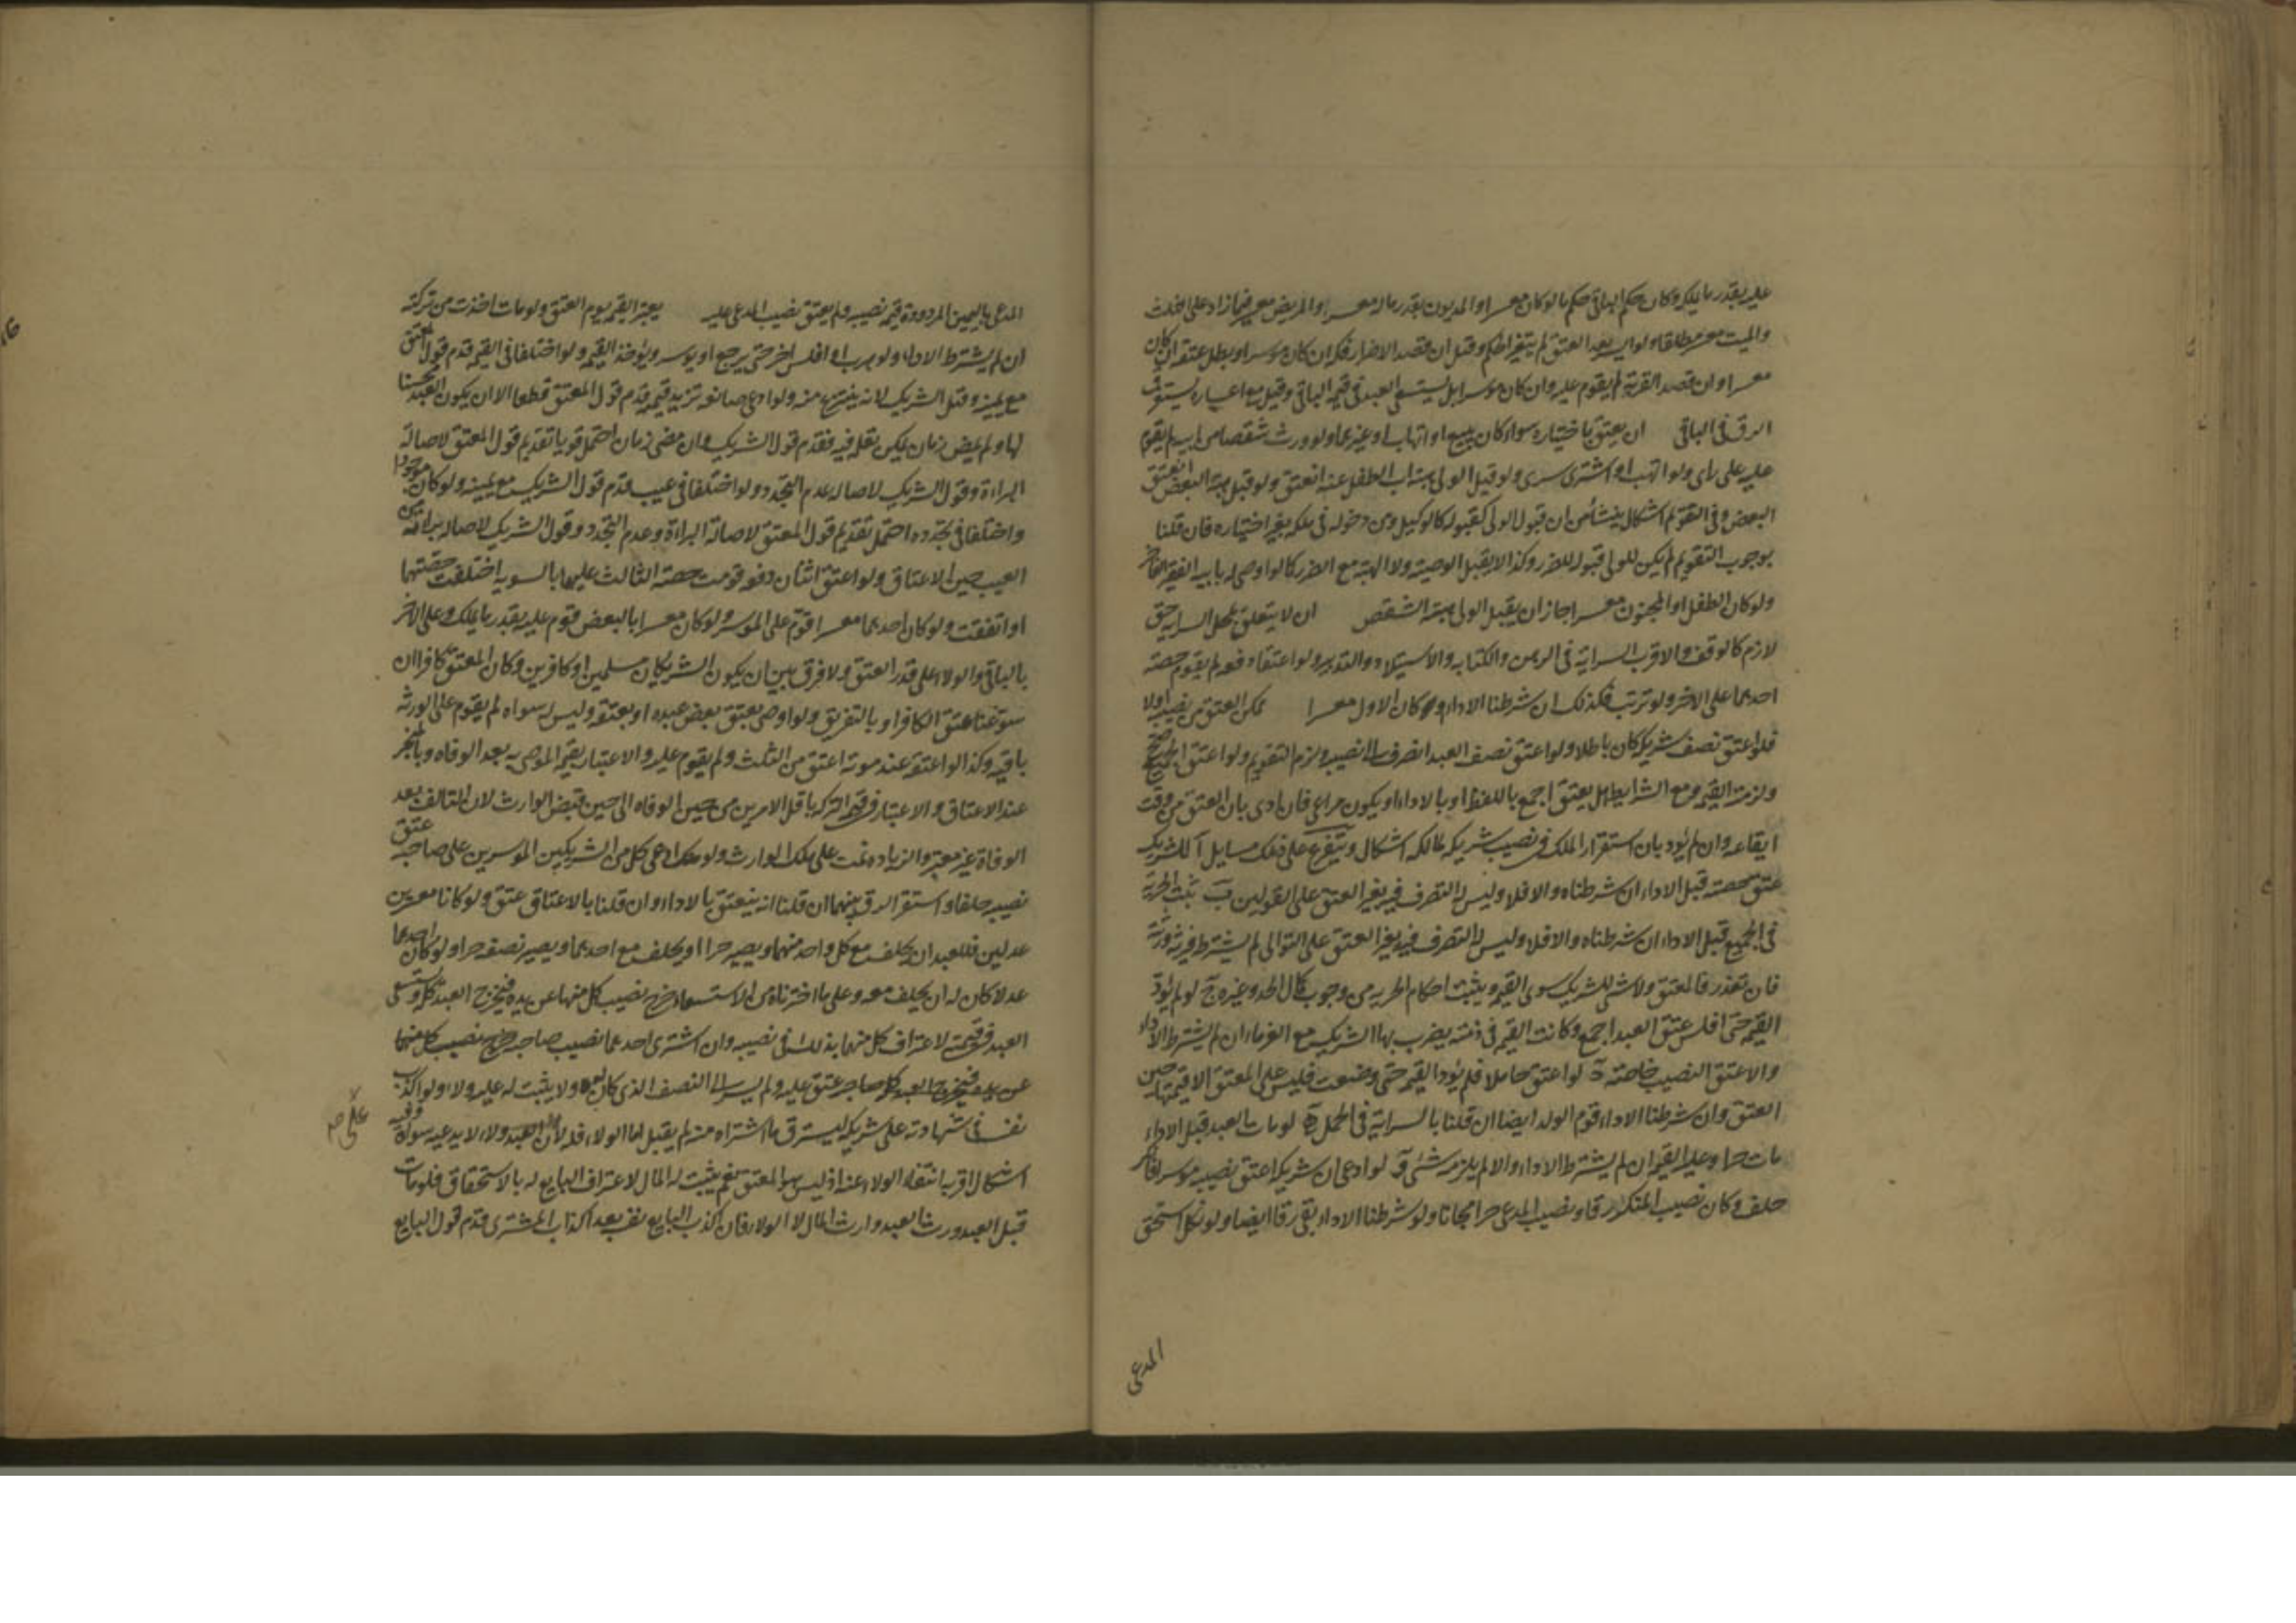 عليه بقدر ما يملكه وكان حكم الباقي حكم ما لو كان معسرا والمديون بقدر ماله معسر والمريض معسر فيما زاد على الثلث
والميت معسر مطلقا ولو ايسر بعد العتق لم يتغير الحكم وقيل ان قصد الاضرار فكه ان كان موسرا وبطل عتقه ان كان
معسرا وان قصد القربة لم يقوم عليه وان كان موسرا بل يستسعى العبد في قيمة الباقي وقيل مع اعساره يستقر
الرق في الباقي ان يعتق باختياره سواء كان ببيع او اتهاب او غيرهما ولو ورث شقصا من ابيه لم يقوم
عليه على راى ولو اتهب او اشترى سرى ولو قبل الولي هبة اب الطفل عنه انعتق ولو قبل هبة البعض انعتق
البعض وفي التقويم اشكال ينشأ من ان قبول الولي كقبوله كالوكيل ومن دخوله في ملكه بغير اختياره فان قلنا
بوجوب التقويم لم يكن للولي قبوله للضرر وكذا لا يقبل الوصية ولا الهبة مع الضرر كما لو اوصى له بابيه الفقير
ولو كان الطفل او المجنون معسرا جاز ان يقبل الولي هبة الشقص ان لا يتعلق بمحل السراية حق
لازم كالوقف والاقرب السراية في الرهن والكتابة والاستيلاد والتدبير ولو اعتقا دفعه لم يقوم حصة
احدهما على الاخر ولو ترتب فكذلك ان شرطنا الاداء او كان الاول معسرا تمكن العتق من نصيبه اولا
فلو اعتق نصف شريكه كان باطلا ولو اعتق نصف العبد انصرف الى نصيبه ولزم التقويم ولو اعتق الجميع صح
ولزمت القيمة ومع الشرايط هل يعتق اجمع باللفظ او بالاداء او يكون مراعى فان ادى بان العتق من وقت
ايقاعه وان لم يؤد بان استقرار الملك في نصيب شريكه لمالكه اشكال ويتفرع على ذلك مسايل آ للشريك
عتق حصته قبل الاداء ان شرطناه والا فلا وليس له التصرف فيه بغير العتق على القولين ب تثبت الحرية
في الجميع قبل الاداء ان شرطناه والا فلا وليس له التصرف فيه بغير العتق على التوالى لم يشترط فيرثه ورثته
فان تعذر فالمعتق ولا شئ للشريك سوى القيمة ويثبت احكام الحرية من وجوب كمال الحد وغيره ج لو لم يؤد
القيمة حتى افلس عتق العبد اجمع وكانت القيمة في ذمته يضرب بها الشريك مع الغرماء ان لم يشترط الاداء
والا عتق النصيب خاصة د لو اعتق حاملا فلم يؤد القيمة حتى وضعت فليس على المعتق الا قيمتها حين
العتق وان شرطنا الاداء قوم الولد ايضا ان قلنا بالسراية في الحمل ه لو مات العبد قبل الاداء
مات حرا وعليه القيمة ان لم يشترط الاداء والا لم يلزمه شئ و لو ادعى ان شريكه اعتق نصيبه موسرا فانكر
حلف وكان نصيب المنكر رقا ونصيب المدعي حرا مجانا ولو شرطنا الاداء بقي رقا ايضا ولو نكل استحق
المدعى
المدعي باليمين المردودة قيمة نصيبه ولم يعتق نصيب المدعى عليه يعتبر القيمة يوم العتق ولو مات اخذت من تركته
ان لم يشترط الاداء ولو هرب او افلس اخر حتى يرجع او يوسر ويؤخذ القيمة ولو اختلفا في القيمة قدم قول المعتق
مع يمينه وقيل الشريك لانه ينتزع منه ولو ادعى صناعة تزيد قيمته قدم قول المعتق قطعا الا ان يكون العبد محسنا
لها ولم يمض زمان يمكن تعلمه فيه فيقدم قول الشريك وان مضى زمان احتمل قويا تقديم قول المعتق لاصالة
البراءة وقول الشريك لاصالة عدم التجدد ولو اختلفا في عيب قدم قول الشريك مع يمينه ولو كان موجودا
واختلفا في تجدده احتمل تقديم قول المعتق لاصالة البراءة وعدم التجدد وقول الشريك لاصالة براءته من
العيب حين الاعتاق ولو اعتق اثنان دفعه قومت حصة الثالث عليهما بالسوية اختلفت حصتهما
او اتفقت ولو كان احدهما معسرا قوم على الموسر ولو كان معسرا بالبعض قوم عليه بقدر ما يملك وعلى الاخر
بالباقي والولاء على قدر العتق ولا فرق بين ان يكون الشريكان مسلمين او كافرين وكان المعتق كافرا ان
سوغنا عتق الكافر او بالتفريق ولو اوصى بعتق بعض عبده او بعتقه وليس له سواه لم يقوم على الورثة
باقيه وكذا لو اعتقه عند موته اعتق من الثلث ولم يقوم عليه والاعتبار بقيمة الموصى به بعد الوفاه وبالمنجز
عند الاعتاق والاعتبار في قيمة التركة باقل الامرين من حين الوفاه الى حين قبض الوارث لان التالف بعد
الوفاة غير معتبر والزيادة نمت على ملك الوارث ولو ادعى كل من الشريكين الموسرين على صاحبه عتق
نصيبه حلفا واستقر الرق بينهما ان قلنا انه ينعتق بالاداء وان قلنا بالاعتاق عتق ولو كانا معسرين
عدلين فللعبد ان يحلف مع كل واحد منهما ويصير حرا او يحلف مع احدهما ويصير نصفه حرا ولو كان احدهما
عدلا كان له ان يحلف معه وعلى ما اخترناه من الاستسعاء خرج نصيب كل منهما عن يده فيخرج العبد كله ويستسعى
العبد في قيمته لاعتراف كل منهما بذلك في نصيبه وان اشترى احدهما نصيب صاحبه خرج نصيب كل منهما
عن يده فيخرج العبد كله صاحبه عتق عليه ولم يسر الى النصف الذي كان له ولا يثبت له عليه ولاء ولو اكذب
نفسه في شهادته على شريكه ليسترق ما اشتراه منه لم يقبل اما الولاء فله لان على العبد ولاء لا يدعيه سواه وفيه
اشكال اقربه انتفاء الولاء عنه اذ ليس هو المعتق نعم يثبت له المال لاعتراف البايع له بالاستحقاق فلو مات
قبل العبد ورث العبد وارث المال لا الولاء فان كذب البايع نفسه بعد اكذاب المشتري قدم قول البايع